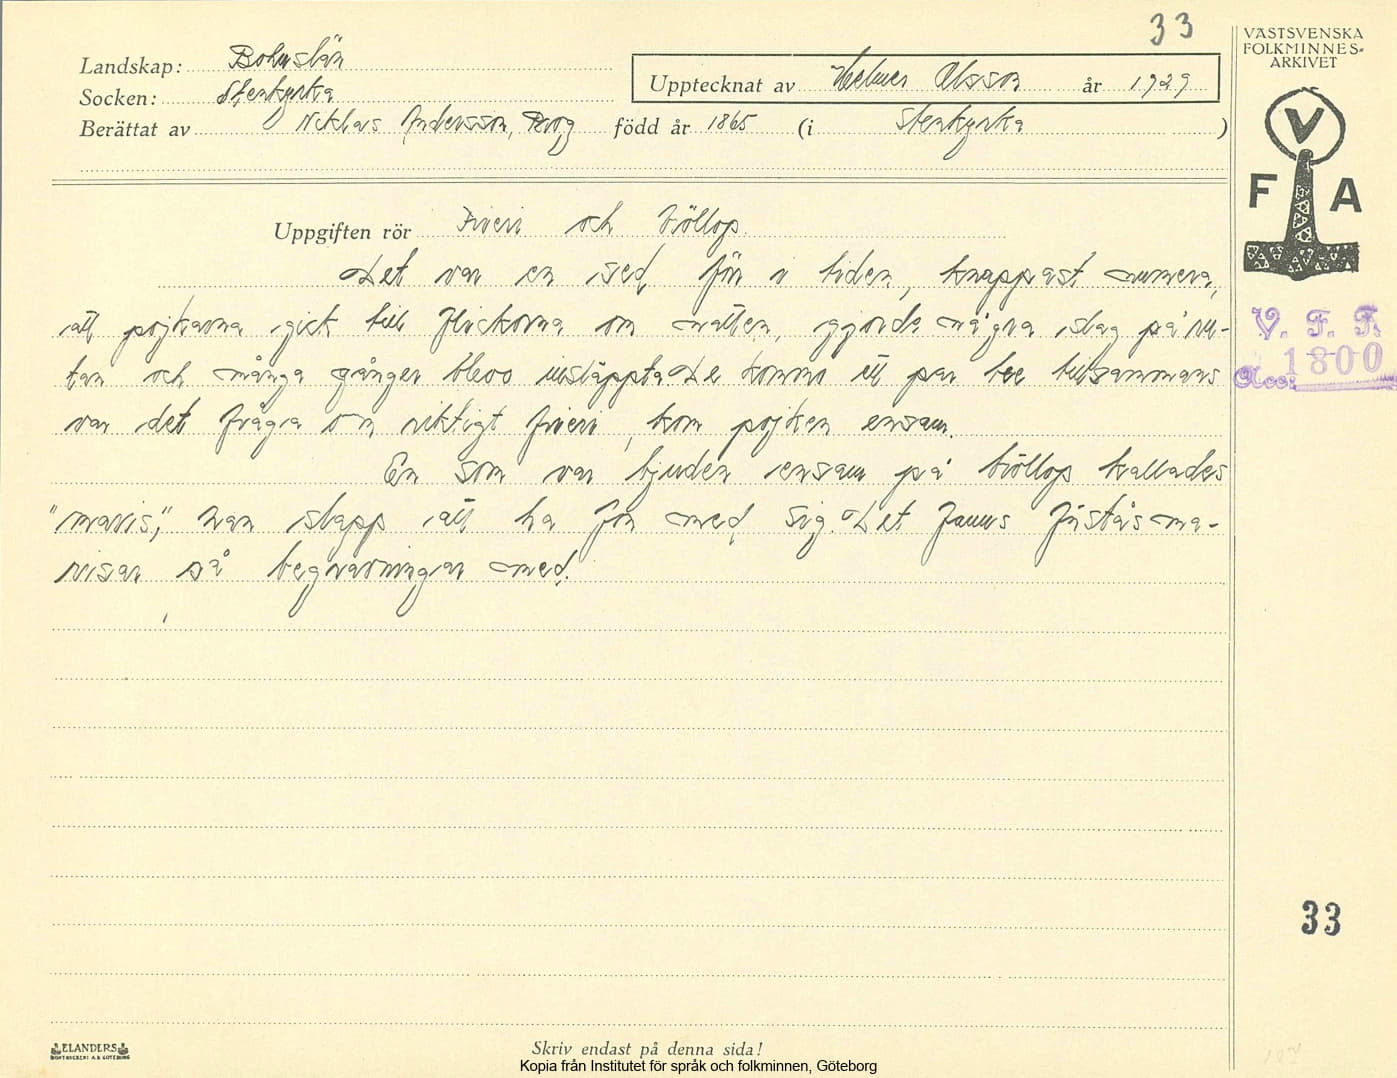 33
VÄSTSVENSKA
FOLKMINNES-
ARKIVET
Landskap: Bohuslän
Upptecknat av Helmer Olsson år 1929
Socken: Stenkyrka
Berättat av Niklas Andersson, född år 1865 (i Stenkyrka )
V
F A
Uppgiften rör Frieri och bröllop.
Det var en sed förr i tiden, knappast numera,
att pojkarna gick till flickorna om natten, gjorde några slag på ru-
tan och många gånger blevo insläppta. De kommo ett par tre tillsammans
var det fråga om riktigt frieri, kom pojken ensam.
En som var bjuden ensam på bröllop kallades
"mavis", han slapp att ha med sig. Det fanns ma-
visar på begravningar med.
V. F. F.
Acc: 1800
33
ELANDERS
BOKTRYCKERI A.B. GÖTEBORG
Skriv endast på denna sida!
Kopia från Institutet för språk och folkminnen, Göteborg